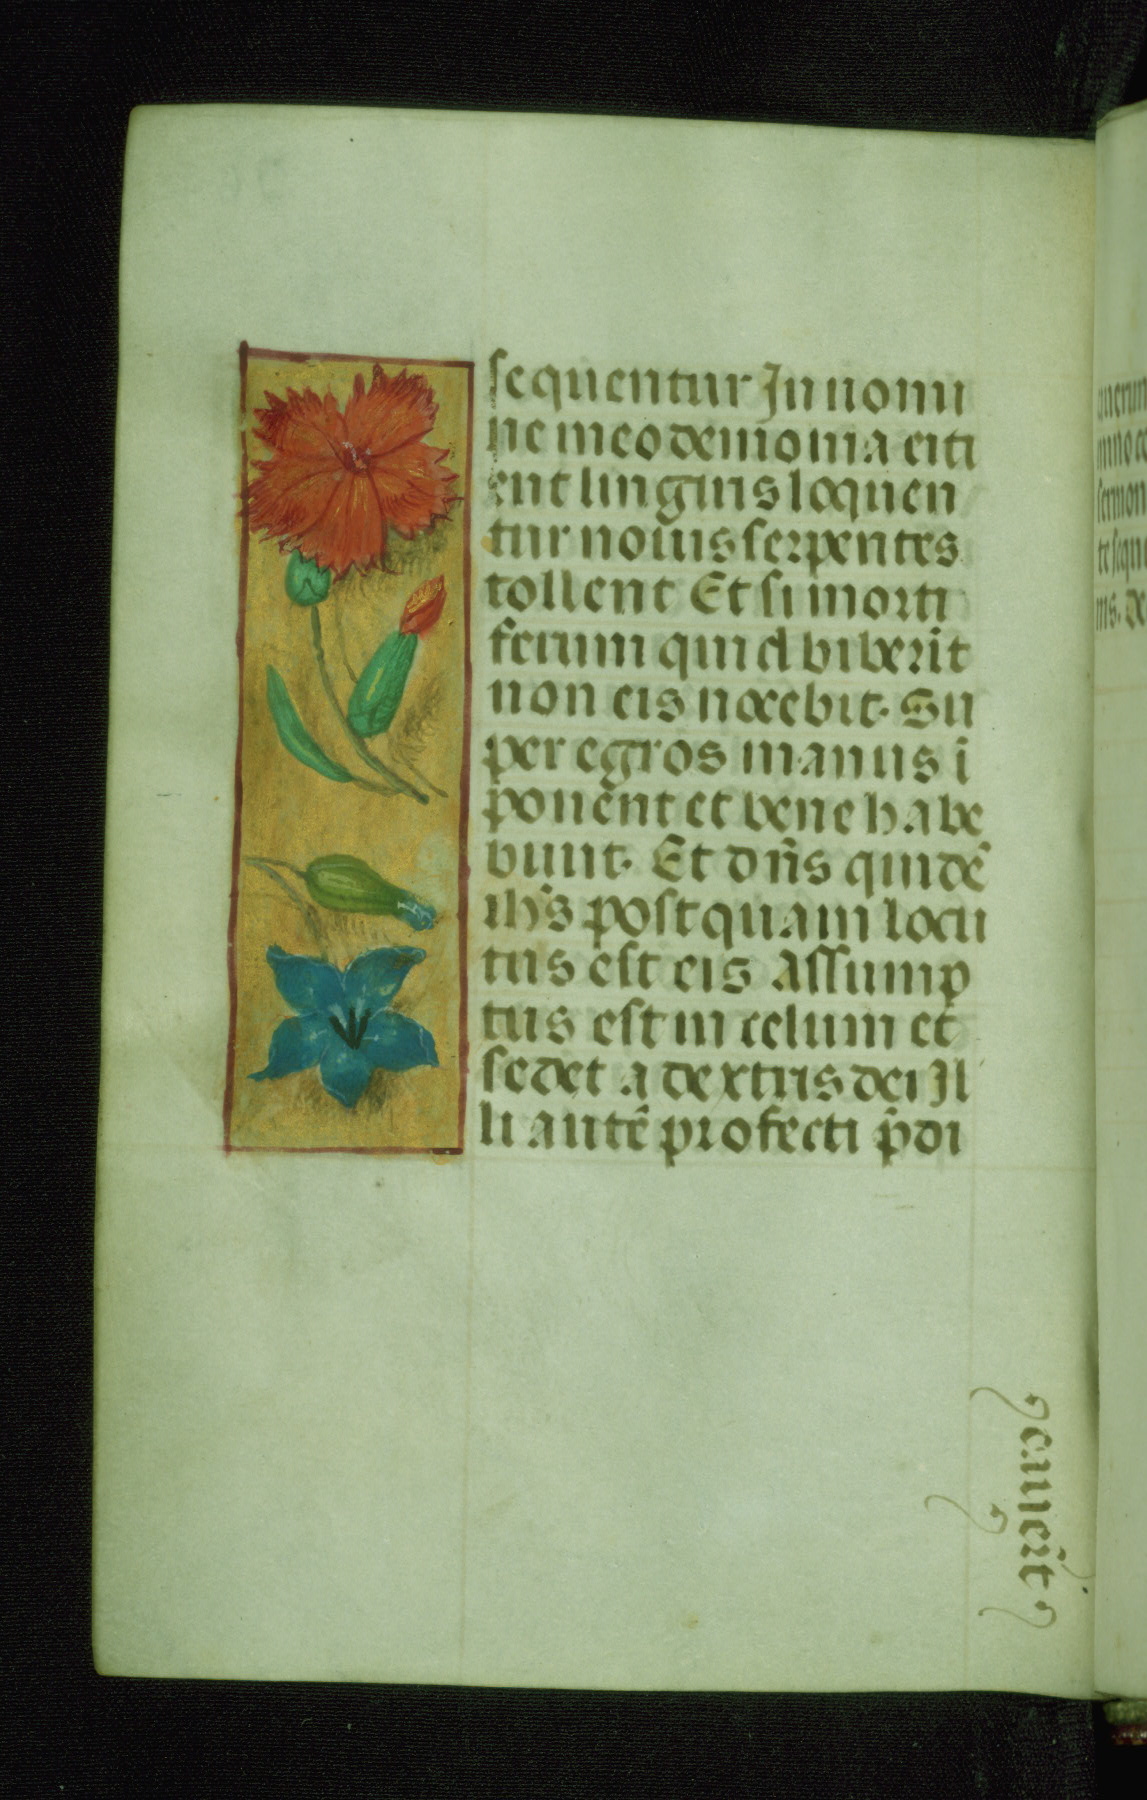 sequentur In nomi
ne meo demonia eiti
ent linguis loquen
tur nouis serpentes
tollent Et si morti
ferum quid biberĩt
non eis nocebit. Su
per egros manus ĩ
ponẽnt et bene habe
bunt. Et dñs quidẽ
ihs̃ postquam locu
tus est eis Assump
tus est in celum et
sedet a dextris dei Il
li autẽ profecti p̃di
cauerũt